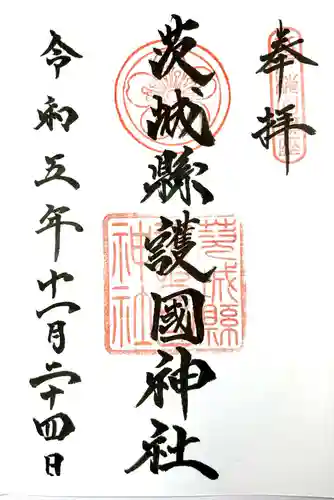 奉拝
茨城縣護國神社
令和五年十一月二十四日
茨城縣
護國
神社